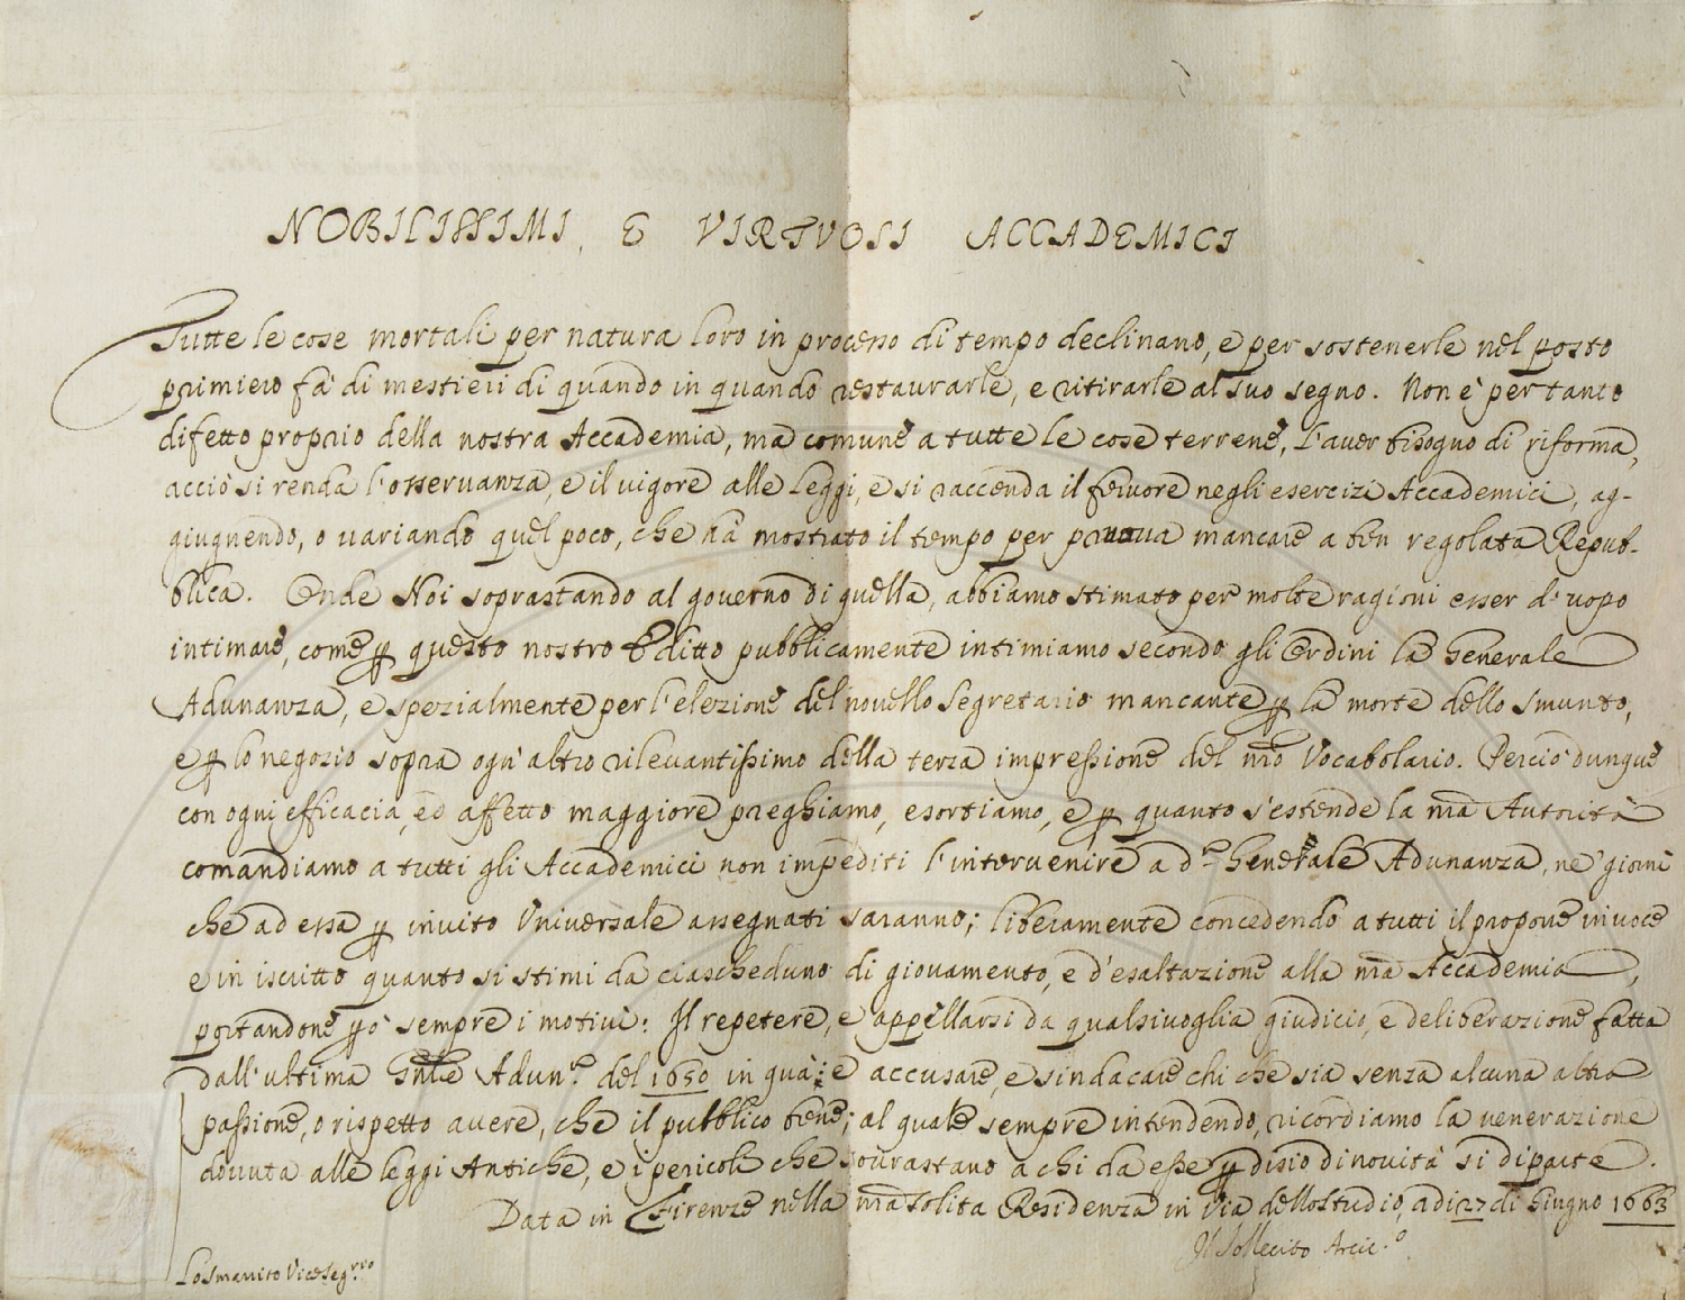 NOBILISSIMI, E VIRTVOSI ACCADEMICI
Tutte le cose mortali per natura loro in processo di tempo declinano, e per sostenerle nel posto
primiero fà di mestieri di quando in quando restaurarle, e ritirarle al suo segno. Non è per tanto
difetto proprio della nostra Accademia, ma comune a tutte le cose terrene, l'auer bisogno di riforma,
acciò si renda l'osseruanza, e il uigore alle leggi, e si raccenda il feruore negli esercizi Accademici, ag-
giugnendo, o uariando quel poco, che hà mostrato il tempo per pruoua mancare a ben regolata Repub-
blica. Onde Noi soprastando al gouerno di quella, abbiamo stimato per molte ragioni esser d'uopo
intimare, come ꝑ questo nostro Editto pubblicamente intimiamo secondo gli Ordini la Generale
Adunanza, e spezialmente per l'elezione del nouello Segretario mancante ꝑ la morte dello Smunto,
e ꝑ lo negozio sopra ogn'altro rileuantissimo della terza impressione del nrõ Vocabolario. Perciò dunque
con ogni efficacia, ed affetto maggiore preghiamo, esortiamo, e ꝑ quanto s'estende la nrã Autorità
comandiamo a tutti gli Accademici non impediti l'interuenire a d.ª Generale Adunanza, ne' giorni
che ad essa ꝑ inuito Vniuersale assegnati saranno; liberamente concedendo a tutti il proporre in uoce
e in iscritto quanto si stimi da ciascheduno di giouamento, e d'esaltazione alla nrã Accademia,
portandone ꝑò sempre i motiui: Il repetere, e appellarsi da qualsiuoglia giudicio, e deliberazione fatta
dall'ultima Gnle Adun.ª del 1650 in quà: e accusare, e sindacare chi che sia senza alcuna altra
passione, o rispetto auere, che il pubblico bene; al quale sempre intendendo, ricordiamo la uenerazione
douuta alle leggi Antiche, e i pericoli che sourastano a chi da esse ꝑ disio di nouità si diparte.
Data in Firenze nella nrã solita Residenza in Via dello Studio, adi 27 di Giugno 1663
Il Sollecito Arcic.º
Lo Smarrito Vicesegr.rio